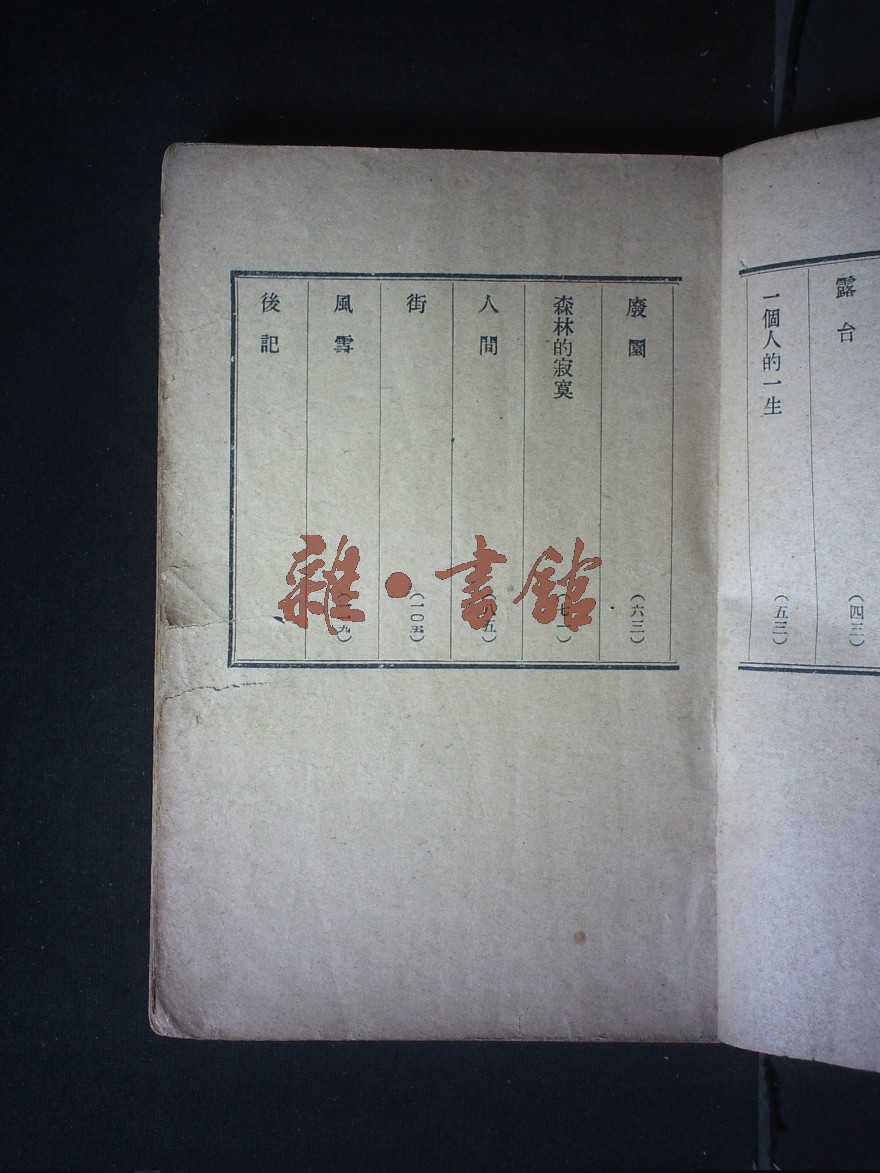 露台（四三）
一個人的一生（五三）
廢園（六三）
森林的寂寞（七一）
人間（八五）
街（一〇五）
風雪
後記
雜·書館